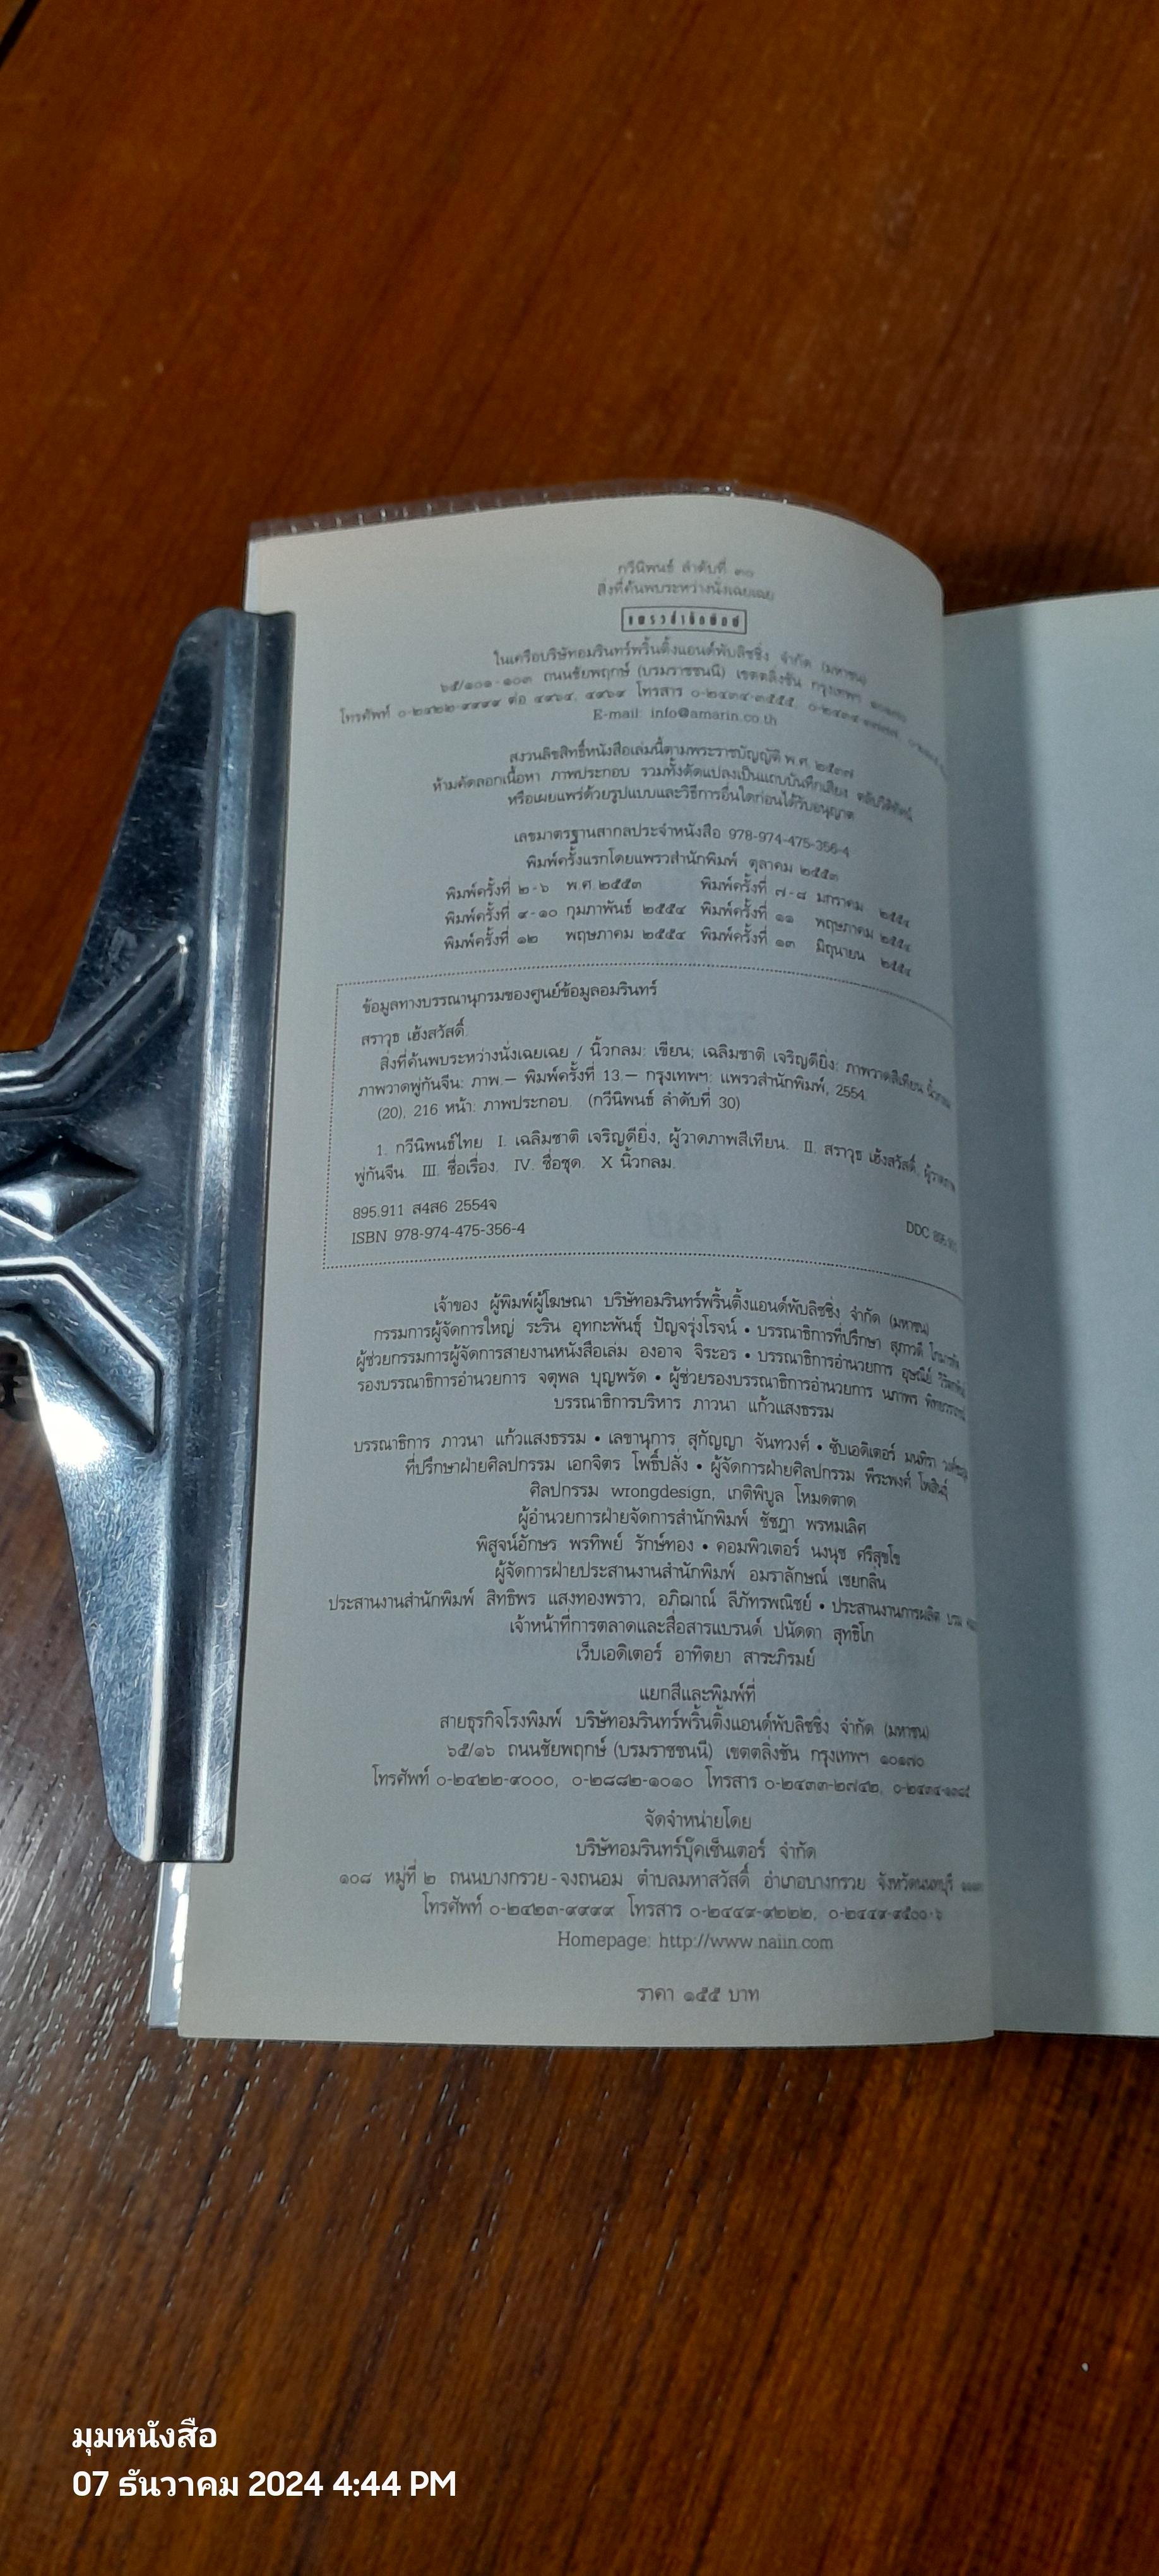 กวีนิพนธ์ ลำดับที่ ๓๐
สิ่งที่ค้นพบระหว่างนั่งเฉยเฉย
แพรวสำนักพิมพ์
ในเครือบริษัทอมรินทร์พริ้นติ้งแอนด์พับลิชชิ่ง จำกัด (มหาชน)
๖๕/๑๐๑-๑๐๓ ถนนชัยพฤกษ์ (บรมราชชนนี) เขตตลิ่งชัน กรุงเทพฯ ๑๐๑๗๐
โทรศัพท์ ๐-๒๔๒๒-๙๙๙๙ ต่อ ๔๙๖๔, ๔๙๖๙ โทรสาร ๐-๒๔๓๔-๓๕๕๕,
E-mail: info@amarin.co.th
สงวนลิขสิทธิ์หนังสือเล่มนี้ตามพระราชบัญญัติ พ.ศ. ๒๕๓๗
ห้ามคัดลอกเนื้อหา ภาพประกอบ รวมทั้งดัดแปลงเป็นแถบบันทึกเสียง ตลับวิดีทัศน์
หรือเผยแพร่ด้วยรูปแบบและวิธีการอื่นใดก่อนได้รับอนุญาต
เลขมาตรฐานสากลประจำหนังสือ 978-974-475-356-4
พิมพ์ครั้งแรกโดยแพรวสำนักพิมพ์ ตุลาคม ๒๕๕๓
พิมพ์ครั้งที่ ๒-๖ พ.ศ.๒๕๕๓ พิมพ์ครั้งที่ ๗-๘ มกราคม ๒๕๕๔
พิมพ์ครั้งที่ ๙-๑๐ กุมภาพันธ์ ๒๕๕๔ พิมพ์ครั้งที่ ๑๑ พฤษภาคม ๒๕๕๔
พิมพ์ครั้งที่ ๑๒ พฤษภาคม ๒๕๕๔ พิมพ์ครั้งที่ ๑๓ มิถุนายน ๒๕๕๔
ข้อมูลทางบรรณานุกรมของศูนย์ข้อมูลอมรินทร์
สราวุธ เฮ้งสวัสดิ์.
สิ่งที่ค้นพบระหว่างนั่งเฉยเฉย / นิ้วกลม: เขียน; เฉลิมชาติ เจริญดียิ่ง: ภาพวาดสีเทียน นิ้วกลม
ภาพวาดพู่กันจีน: ภาพ.— พิมพ์ครั้งที่ 13.— กรุงเทพฯ: แพรวสำนักพิมพ์, 2554.
(20), 216 หน้า: ภาพประกอบ. (กวีนิพนธ์ ลำดับที่ 30)
1. กวีนิพนธ์ไทย I. เฉลิมชาติ เจริญดียิ่ง, ผู้วาดภาพสีเทียน. II. สราวุธ เฮ้งสวัสดิ์, ผู้วาดภาพ
พู่กันจีน. III. ชื่อเรื่อง. IV. ชื่อชุด. X นิ้วกลม.
895.911 ส4ส6 2554จ
DDC 895.911
ISBN 978-974-475-356-4
เจ้าของ ผู้พิมพ์ผู้โฆษณา บริษัทอมรินทร์พริ้นติ้งแอนด์พับลิชชิ่ง จำกัด (มหาชน)
กรรมการผู้จัดการใหญ่ ระริน อุทกะพันธุ์ ปัญจรุ่งโรจน์ • บรรณาธิการที่ปรึกษา สุภาวดี โกมารทัต
ผู้ช่วยกรรมการผู้จัดการสายงานหนังสือเล่ม องอาจ จิระอร • บรรณาธิการอำนวยการ อุษณีย์
รองบรรณาธิการอำนวยการ จตุพล บุญพรัด • ผู้ช่วยรองบรรณาธิการอำนวยการ นภาพร
บรรณาธิการบริหาร ภาวนา แก้วแสงธรรม
บรรณาธิการ ภาวนา แก้วแสงธรรม • เลขานุการ สุกัญญา จันทวงศ์ • ซับเอดิเตอร์ มนทิรา
ที่ปรึกษาฝ่ายศิลปกรรม เอกจิตร โพธิ์ปลั่ง • ผู้จัดการฝ่ายศิลปกรรม พีระพงศ์ โพสินธุ์
ศิลปกรรม wrongdesign, เกติพิบูล โหมดตาด
ผู้อำนวยการฝ่ายจัดการสำนักพิมพ์ ชัชฎา พรหมเลิศ
พิสูจน์อักษร พรทิพย์ รักษ์ทอง • คอมพิวเตอร์ นงนุช ศรีสุขโข
ผู้จัดการฝ่ายประสานงานสำนักพิมพ์ อมราลักษณ์ เชยกลิ่น
ประสานงานสำนักพิมพ์ สิทธิพร แสงทองพราว, อภิฌาณ์ ลีภัทรพณิชย์ • ประสานงานการผลิต
เจ้าหน้าที่การตลาดและสื่อสารแบรนด์ ปนัดดา สุทธิโก
เว็บเอดิเตอร์ อาทิตยา สาระภิรมย์
แยกสีและพิมพ์ที่
สายธุรกิจโรงพิมพ์ บริษัทอมรินทร์พริ้นติ้งแอนด์พับลิชชิ่ง จำกัด (มหาชน)
๖๕/๑๖ ถนนชัยพฤกษ์ (บรมราชชนนี) เขตตลิ่งชัน กรุงเทพฯ ๑๐๑๗๐
โทรศัพท์ ๐-๒๔๒๒-๙๐๐๐, ๐-๒๘๘๒-๑๐๑๐ โทรสาร ๐-๒๔๓๓-๒๗๔๒, ๐-๒๔๓๔-๑๓๘๕
จัดจำหน่ายโดย
บริษัทอมรินทร์บุ๊คเซ็นเตอร์ จำกัด
๑๐๘ หมู่ที่ ๒ ถนนบางกรวย-จงถนอม ตำบลมหาสวัสดิ์ อำเภอบางกรวย จังหวัดนนทบุรี
โทรศัพท์ ๐-๒๔๒๓-๙๙๙๙ โทรสาร ๐-๒๔๔๙-๙๒๒๒, ๐-๒๔๔๙-๙๕๐๐-๖
Homepage: http://www.naiin.com
ราคา ๑๕๕ บาท
มุมหนังสือ
07 ธันวาคม 2024 4:44 PM